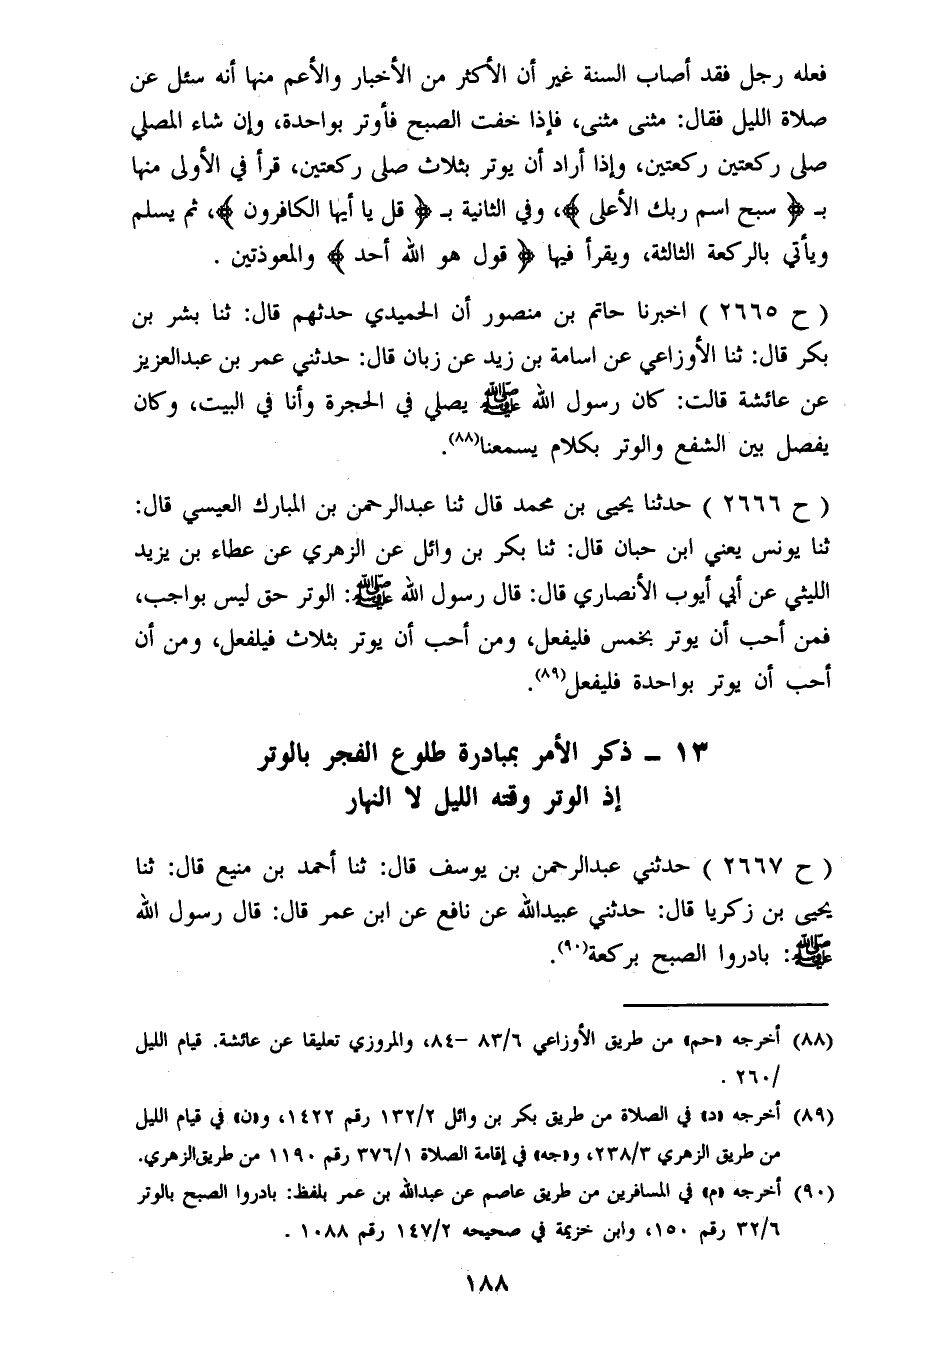 فعله رجل فقد أصاب السنة غير أن الأكثر من الأخبار والأعم منها أنه سئل عن
صلاة الليل فقال: مثنى مثنى، فإذا خفت الصبح فأوتر بواحدة، وإن شاء المصلي
صلى ركعتين ركعتين، وإذا أراد أن يوتر بثلاث صلى ركعتين، قرأ في الأولى منها
بـ ﴿ سبح اسم ربك الأعلى ﴾، وفي الثانية بـ ﴿ قل يا أيها الكافرون ﴾، ثم يسلم
ويأتي بالركعة الثالثة، ويقرأ فيها ﴿ قول هو الله أحد ﴾ والمعوذتين .
( ح ٢٦٦٥ ) اخبرنا حاتم بن منصور أن الحميدي حدثهم قال: ثنا بشر بن
بكر قال: ثنا الأوزاعي عن اسامة بن زيد عن زبان قال: حدثني عمر بن عبدالعزيز
عن عائشة قالت: كان رسول الله ﷺ يصلي في الحجرة وأنا في البيت، وكان
يفصل بين الشفع والوتر بكلام يسمعنا(٨٨).
( ح ٢٦٦٦ ) حدثنا يحيى بن محمد قال ثنا عبدالرحمن بن المبارك العيسي قال:
ثنا يونس يعني ابن حبان قال: ثنا بكر بن وائل عن الزهري عن عطاء بن يزيد
الليثي عن أبي أيوب الأنصاري قال: قال رسول الله ﷺ: الوتر حق ليس بواجب،
فمن أحب أن يوتر بخمس فليفعل، ومن أحب أن يوتر بثلاث فيلفعل، ومن أن
أحب أن يوتر بواحدة فليفعل(٨٩).
١٣ ـ ذكر الأمر بمبادرة طلوع الفجر بالوتر
إذ الوتر وقته الليل لا النهار
( ح ٢٦٦٧ ) حدثني عبدالرحمن بن يوسف قال: ثنا أحمد بن منيع قال: ثنا
يحيى بن زكريا قال: حدثني عبيدالله عن نافع عن ابن عمر قال: قال رسول الله
ﷺ: بادروا الصبح بركعة(٩٠).
(٨٨) أخرجه «حم» من طريق الأوزاعي ٨٣/٦ –٨٤، والمروزي تعليقا عن عائشة. قيام الليل
/٢٦٠ .
(٨٩) أخرجه «د» في الصلاة من طريق بكر بن وائل ١٣٢/٢ رقم ١٤٢٢، و«ن» في قيام الليل
من طريق الزهري ٢٣٨/٣، و«جه» في إقامة الصلاة ٣٧٦/١ رقم ١١٩٠ من طريق الزهري.
(٩٠) أخرجه «م» في المسافرين من طريق عاصم عن عبدالله بن عمر بلفظ: بادروا الصبح بالوتر
٣٢/٦ رقم ١٥٠، وابن خزيمة في صحيحه ١٤٧/٢ رقم ١٠٨٨ .
١٨٨